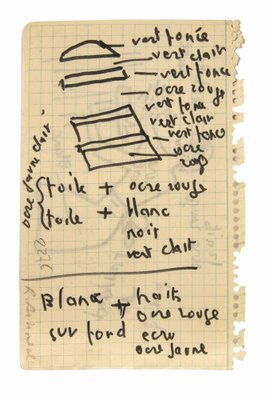 vert foncé
vert clair
vert foncé
ocre rouge
vert foncé
vert clair
vert foncé
ocre
rouge
ocre jaune clair
toile + ocre rouge
toile + blanc
noir
vert clair
Blanc + traits
ocre rouge
sur fond ecru
ocre jaune